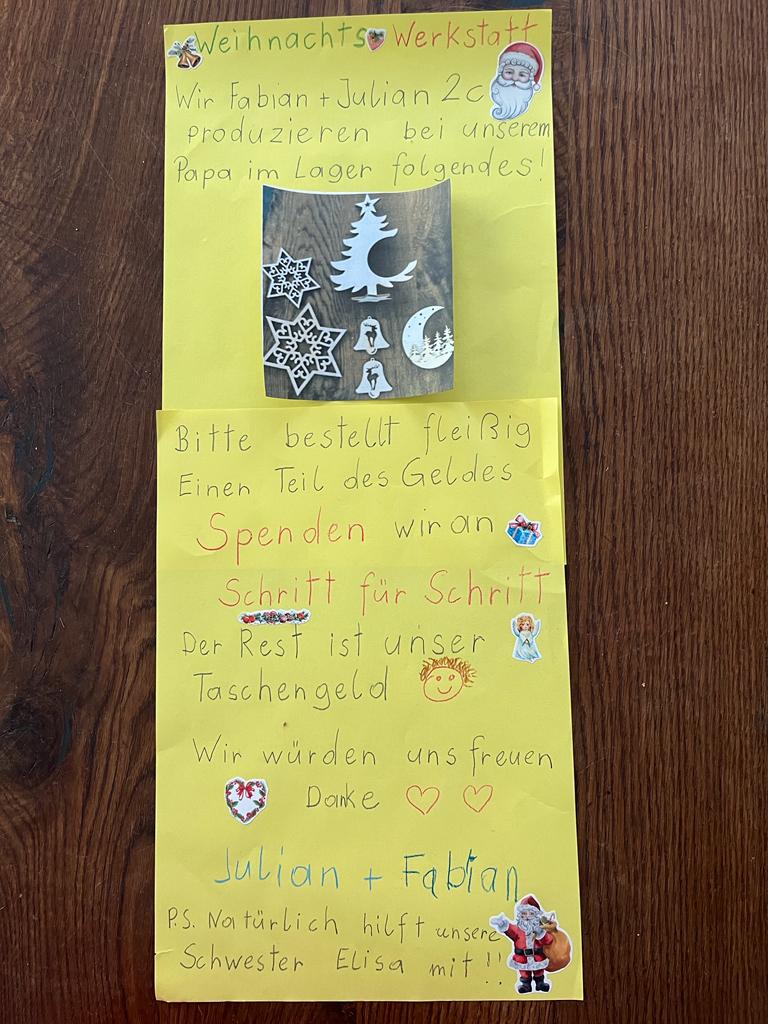 Weihnachts Werkstatt
Wir Fabian + Julian 2c
produzieren bei unserem
Papa im Lager folgendes!
Bitte bestellt fleißig
Einen Teil des Geldes
Spenden wir an
Schritt für Schritt
Der Rest ist unser
Taschengeld
Wir würden uns freuen
Danke
Julian + Fabian
P.S. Natürlich hilft unsere
Schwester Elisa mit!!